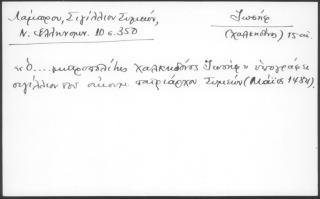 Λάμπρου, Σιγίλλιον Συμεών,
Ν. Ελληνομν. 10 σ. 350
Ἰωσήφ
(Χαλκηδόνος) 15 αι.
«Ὁ .... μητροπολίτης Χαλκηδόνος Ἰωσήφ» ὑπογράφει
σιγίλλιον του οἰκουμ. πατριάρχου Συμεών (Μάϊος 1484).